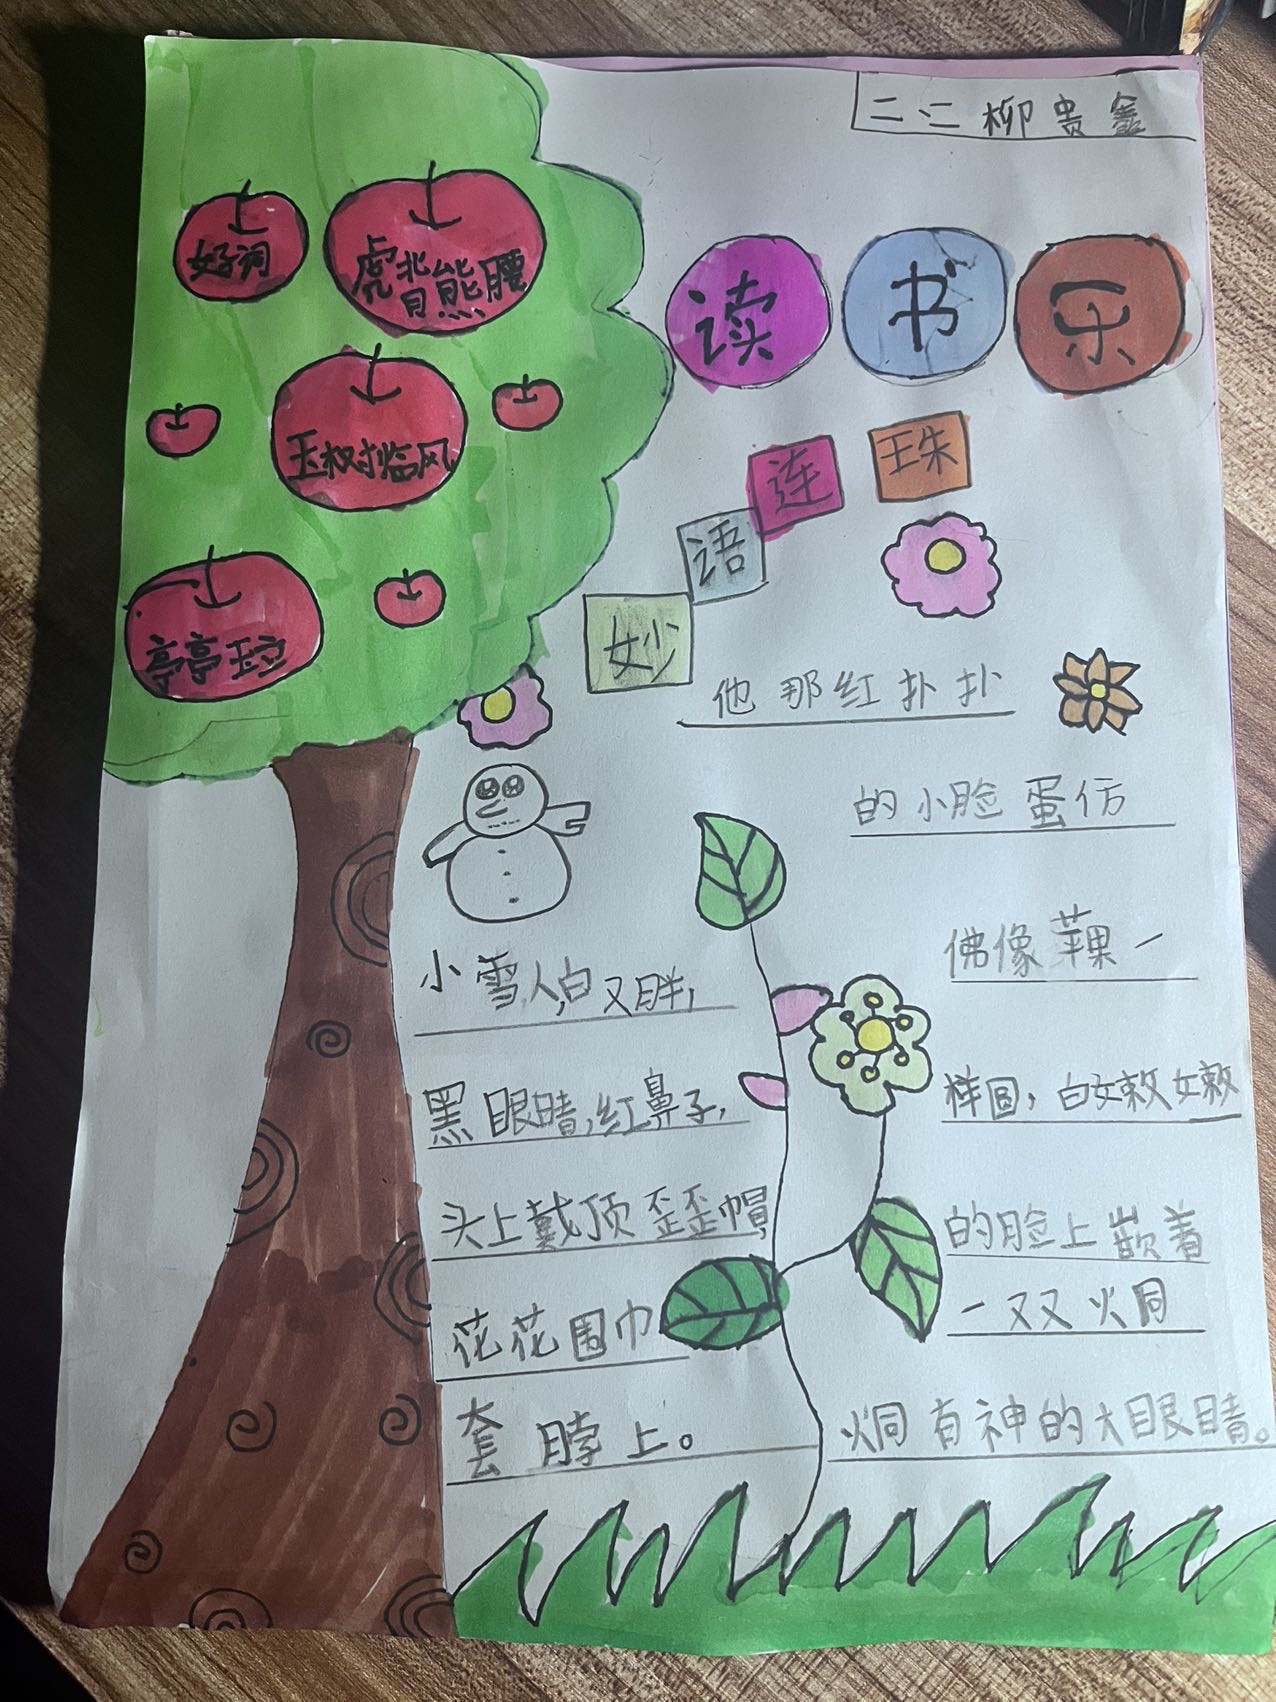 二、二 柳贵鑫
好词
虎背熊腰
玉树临风
亭亭玉立
读书乐
妙语连珠
他那红扑扑
的小脸蛋仿
佛像苹果一
样圆，白嫩嫩
的脸上嵌着
一双又火同
炯有神的大眼睛。
小雪人，白又胖，
黑眼睛，红鼻子，
头上戴顶歪歪帽，
花花围巾
套脖上。